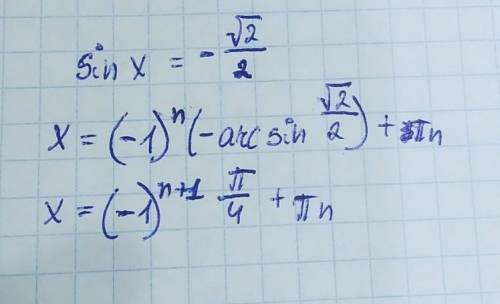 sin x = - √2/2
x = (-1)^n (-arcsin √2/2) + πn
x = (-1)^(n+1) π/4 + πn